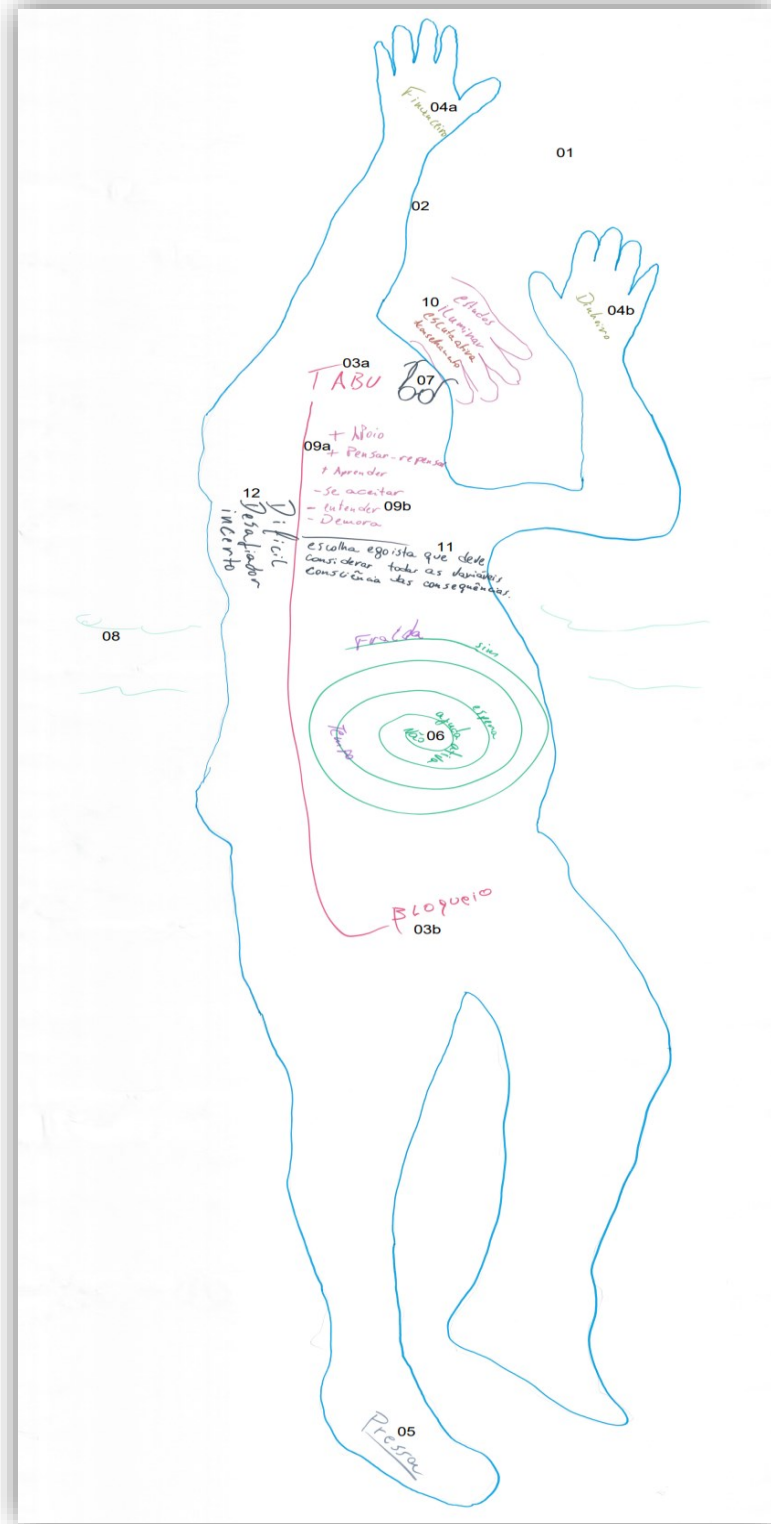 Financeiro
04a
01
02
Dinheiro
04b
10
estudos
Iluminar
escuta ativa
03a
TABU
07
09a
+ Apoio
+ Pensar-repensar
+ Aprender
- se aceitar
- entender
09b
- Demora
12
Difícil
Desafiador
incerto
11
escolha egoista que deve
considerar todas as variáveis
consciência das consequências.
08
Fralda
sim
espera
ajuda
Não
06
Tempo
BLOQUEIO
03b
Pressa
05